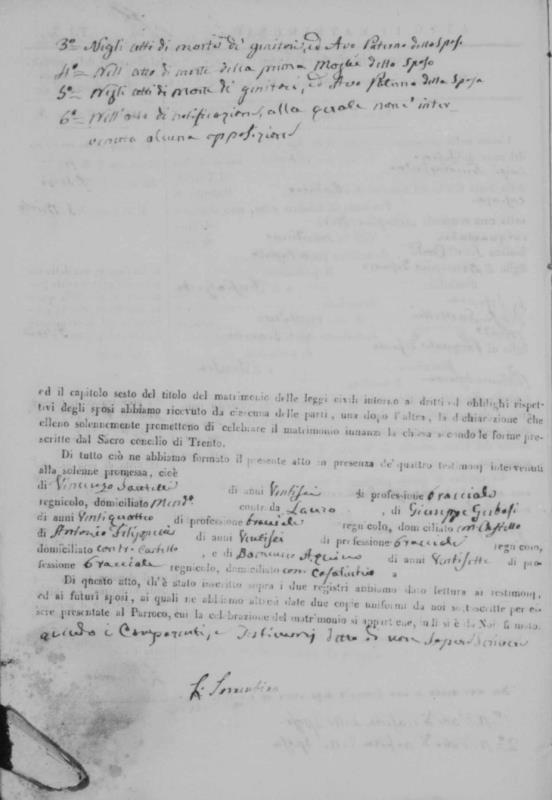 3° Negli atti di morte de' genitori, ed Avo Paterno dello Sposo
4° Nell'atto di morte della prima Moglie dello Sposo
5° Negli atti di morte de' genitori, ed Avo Paterno della Sposa
6° Nell'atto di notificazione, alla quale non è inter
venuta alcuna opposizione
ed il capitolo sesto del titolo del matrimonio delle leggi civili intorno a' dritti ed obblighi rispet-
tivi degli sposi abbiamo ricevuto da ciascuna delle parti, una dopo l'altra, la dichiarazione che
elleno solennemente promettono di celebrare il matrimonio innanzi la chiesa secondo le forme pre-
scritte dal Sacro concilio di Trento.
Di tutto ciò ne abbiamo formato il presente atto in presenza de' quattro testimonj intervenuti
alla solenne promessa, cioè
di Vincenzo di anni Ventisei di professione bracciale
regnicolo, domiciliato contrada Lauro, di Giuseppe
di anni Ventiquattro di professione bracciale regnicolo, domiciliato con Castello
di Antonio di anni Ventisei di professione bracciale regnicolo,
domiciliato contr. Castello, e di Aquino di anni Ventisette di pro-
fessione bracciale regnicolo, domiciliato con a
Di questo atto, ch'è stato inscritto sopra i due registri abbiamo dato lettura ai testimonj,
ed ai futuri sposi, ai quali ne abbiamo altresì date due copie uniformi da noi sottoscritte per es-
sere presentate al Parroco, cui la celebrazione del matrimonio si appartiene, indi si è da Noi firmato.
avendo i Comparenti, e Testimonj detto di non saper scrivere
Sorrentino